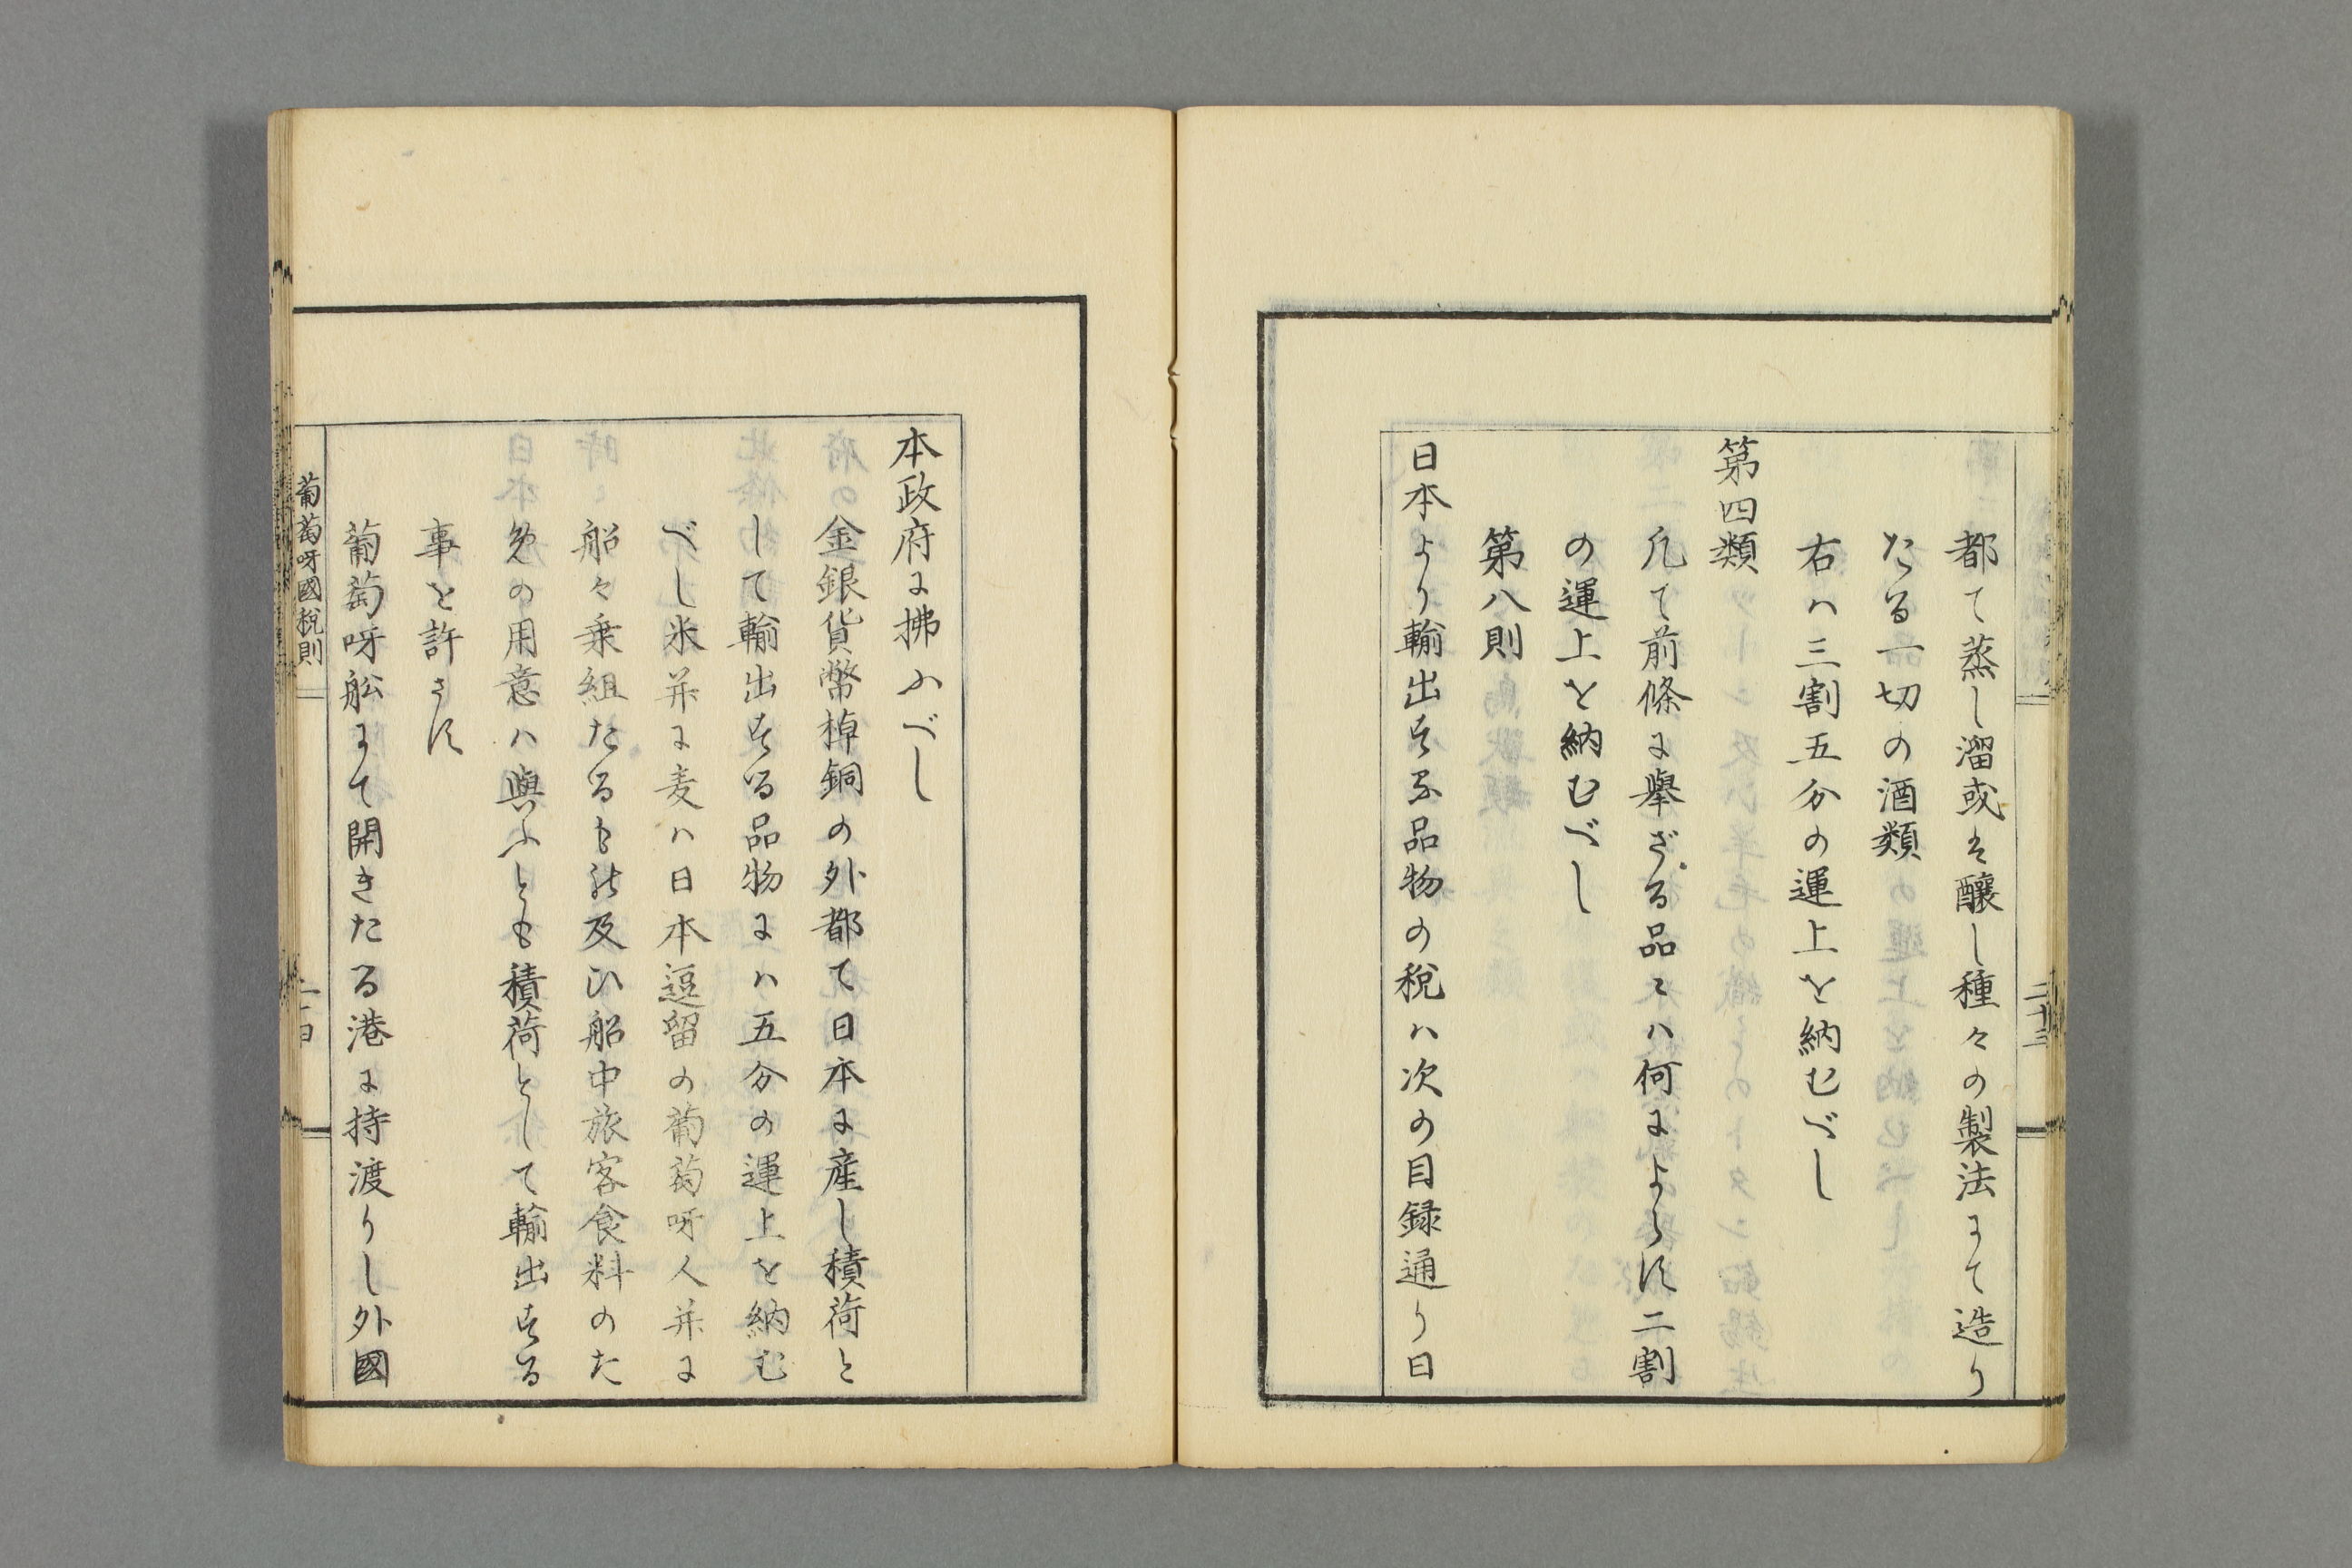 都て蒸し溜或は醸し種々の製法にて造り
たる一切の酒類
右ハ三割五分の運上を納むべし
第四類
凡て前條に擧ざる品々ハ何によらす二割
の運上を納むべし
第八則
日本より輸出する品物の税ハ次の目録通り日
二十三
本政府に拂ふべし
金銀貨幣棹銅の外都て日本に産し積荷と
して輸出する品物にハ五分の運上を納む
べし米并に麦ハ日本逗留の葡萄呀人并に
船々乗組たるもの及ひ船中旅客食料のた
めの用意ハ與ふとも積荷として輸出する
事を許さす
葡萄呀舩にて開きたる港に持渡りし外國
葡萄呀國税則